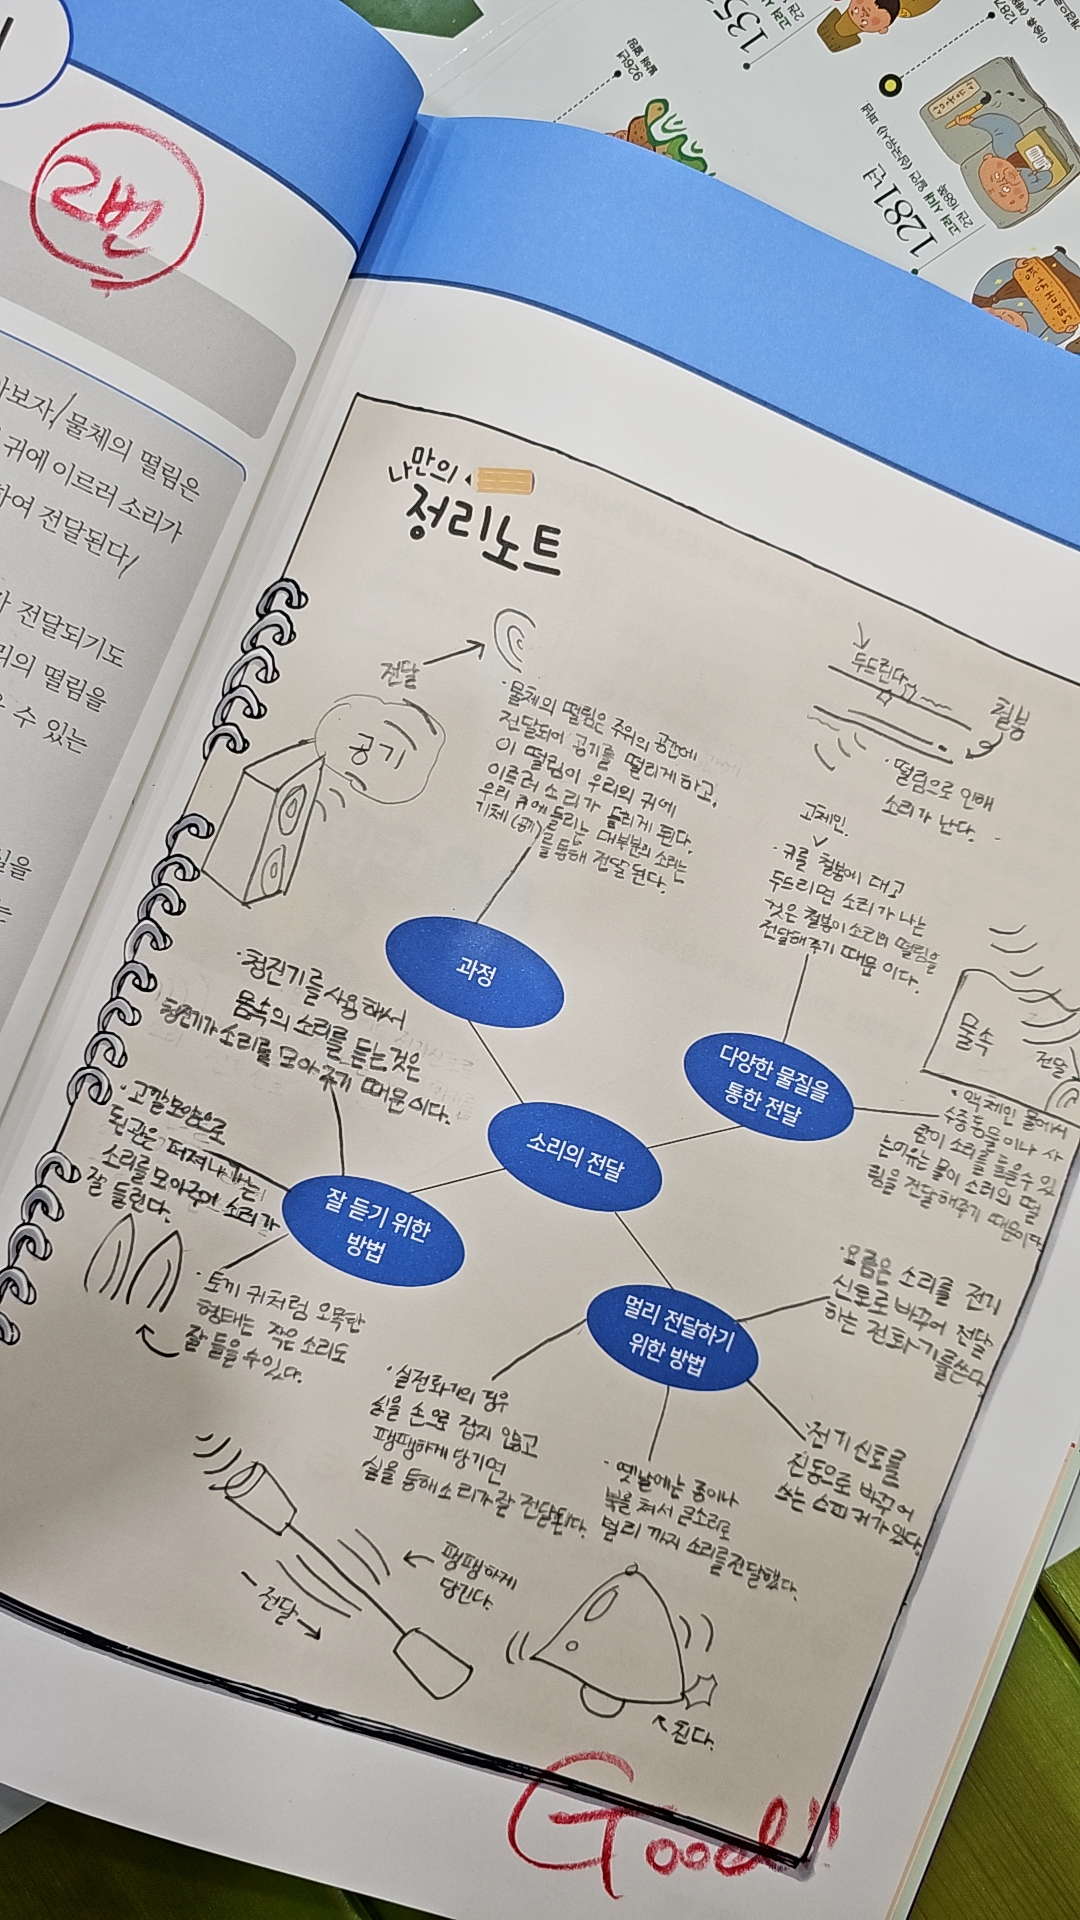 2번
아보자/물체의 떨림은
귀에 이르러 소리가
하여 전달된다/
전달되기도
리의 떨림을
수 있는
926년
1281년
나만의
정리노트
전달
공기
·물체의 떨림은 주위의 공간에
전달되어 공기를 떨리게 하고,
이 떨림이 우리의 귀에
이르러 소리가 들리게 된다.
우리 귀에 들리는 대부분의 소리는
기체(공기)를 통해 전달된다.
두드린다
철봉
·떨림으로 인해
소리가 난다.
고체인
·귀를 철봉에 대고
두드리면 소리가 나는
것은 철봉이 소리의 떨림을
전달해주기 때문이다.
과정
·청진기를 사용해서
몸속의 소리를 듣는것은
청진기가 소리를 모아주기 때문이다.
다양한 물질을
통한 전달
물속
전달
·액체인 물에서
수중동물이나 사
람이 소리를 들을수 있
는이유는 물이 소리의 떨
림을 전달해주기 때문이다.
소리의 전달
·고깔모양으로
된 관은 퍼져나가는
소리를 모아주어 소리가
잘 들린다.
잘 듣기 위한
방법
·토끼 귀처럼 오목한
형태는 작은 소리도
잘 들을 수 있다.
멀리 전달하기
위한 방법
·요즘은 소리를 전기
신호로 바꾸어 전달
하는 전화기를쓴다.
·실전화기의 경우
실을 손으로 잡지 않고
팽팽하게 당기면
실을 통해 소리가 잘 전달된다.
·옛날에는 종이나
북을 쳐서 큰소리로
멀리 까지 소리를 전달했다.
·전기 신호를
진동으로 바꾸어
쓰는 스피커가 있다.
팽팽하게
당긴다.
전달
친다.
Good"